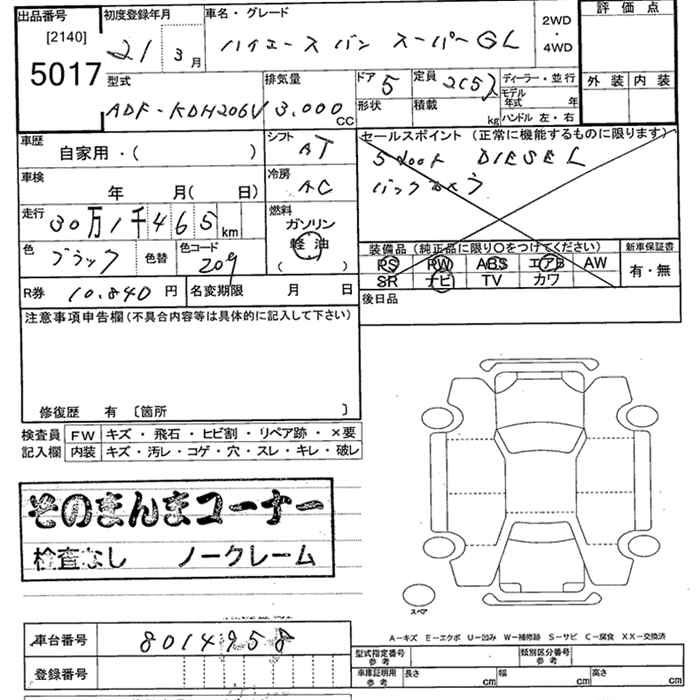 出品番号 初度登録年月 車名・グレード 2WD・4WD 評価点
[2140]
5017 21 3月 ハイエース バン スーパーGL
型式 排気量 ドア 5 定員 2(5)人 ディーラー・並行 外装 内装
ADF-KDH206V 3.000 CC 形状 積載 kg モデル年式 年
ハンドル 左・右
車歴 自家用・( ) シフト AT セールスポイント (正常に機能するものに限ります)
5 DOOR DIESEL
車検 年 月( 日) 冷房 AC
走行 30万1千465km 燃料 ガソリン
軽油
( )
色 ブラック 色替 色コード 209
装備品 (純正品に限り○をつけてください) 新車保証書
PS PW ABS エアB AW 有・無
SR ナビ TV カワ
R券 10.840円 名変期限 月 日 後日品
注意事項申告欄(不具合内容等は具体的に記入して下さい)
修復歴 有 〔箇所 〕
検査員 FW キズ・飛石・ヒビ割・リペア跡・×要
記入欄 内装 キズ・汚レ・コゲ・穴・スレ・キレ・破レ
そのまんまコーナー
検査なし ノークレーム
スペア
A-キズ E-エクボ U-凹み W-補修跡 S-サビ C-腐食 XX-交換済
車台番号 8014958
登録番号
型式指定番号 参考 類別区分番号 参考
車庫証明用 参考 長さ cm 幅 cm 高さ cm